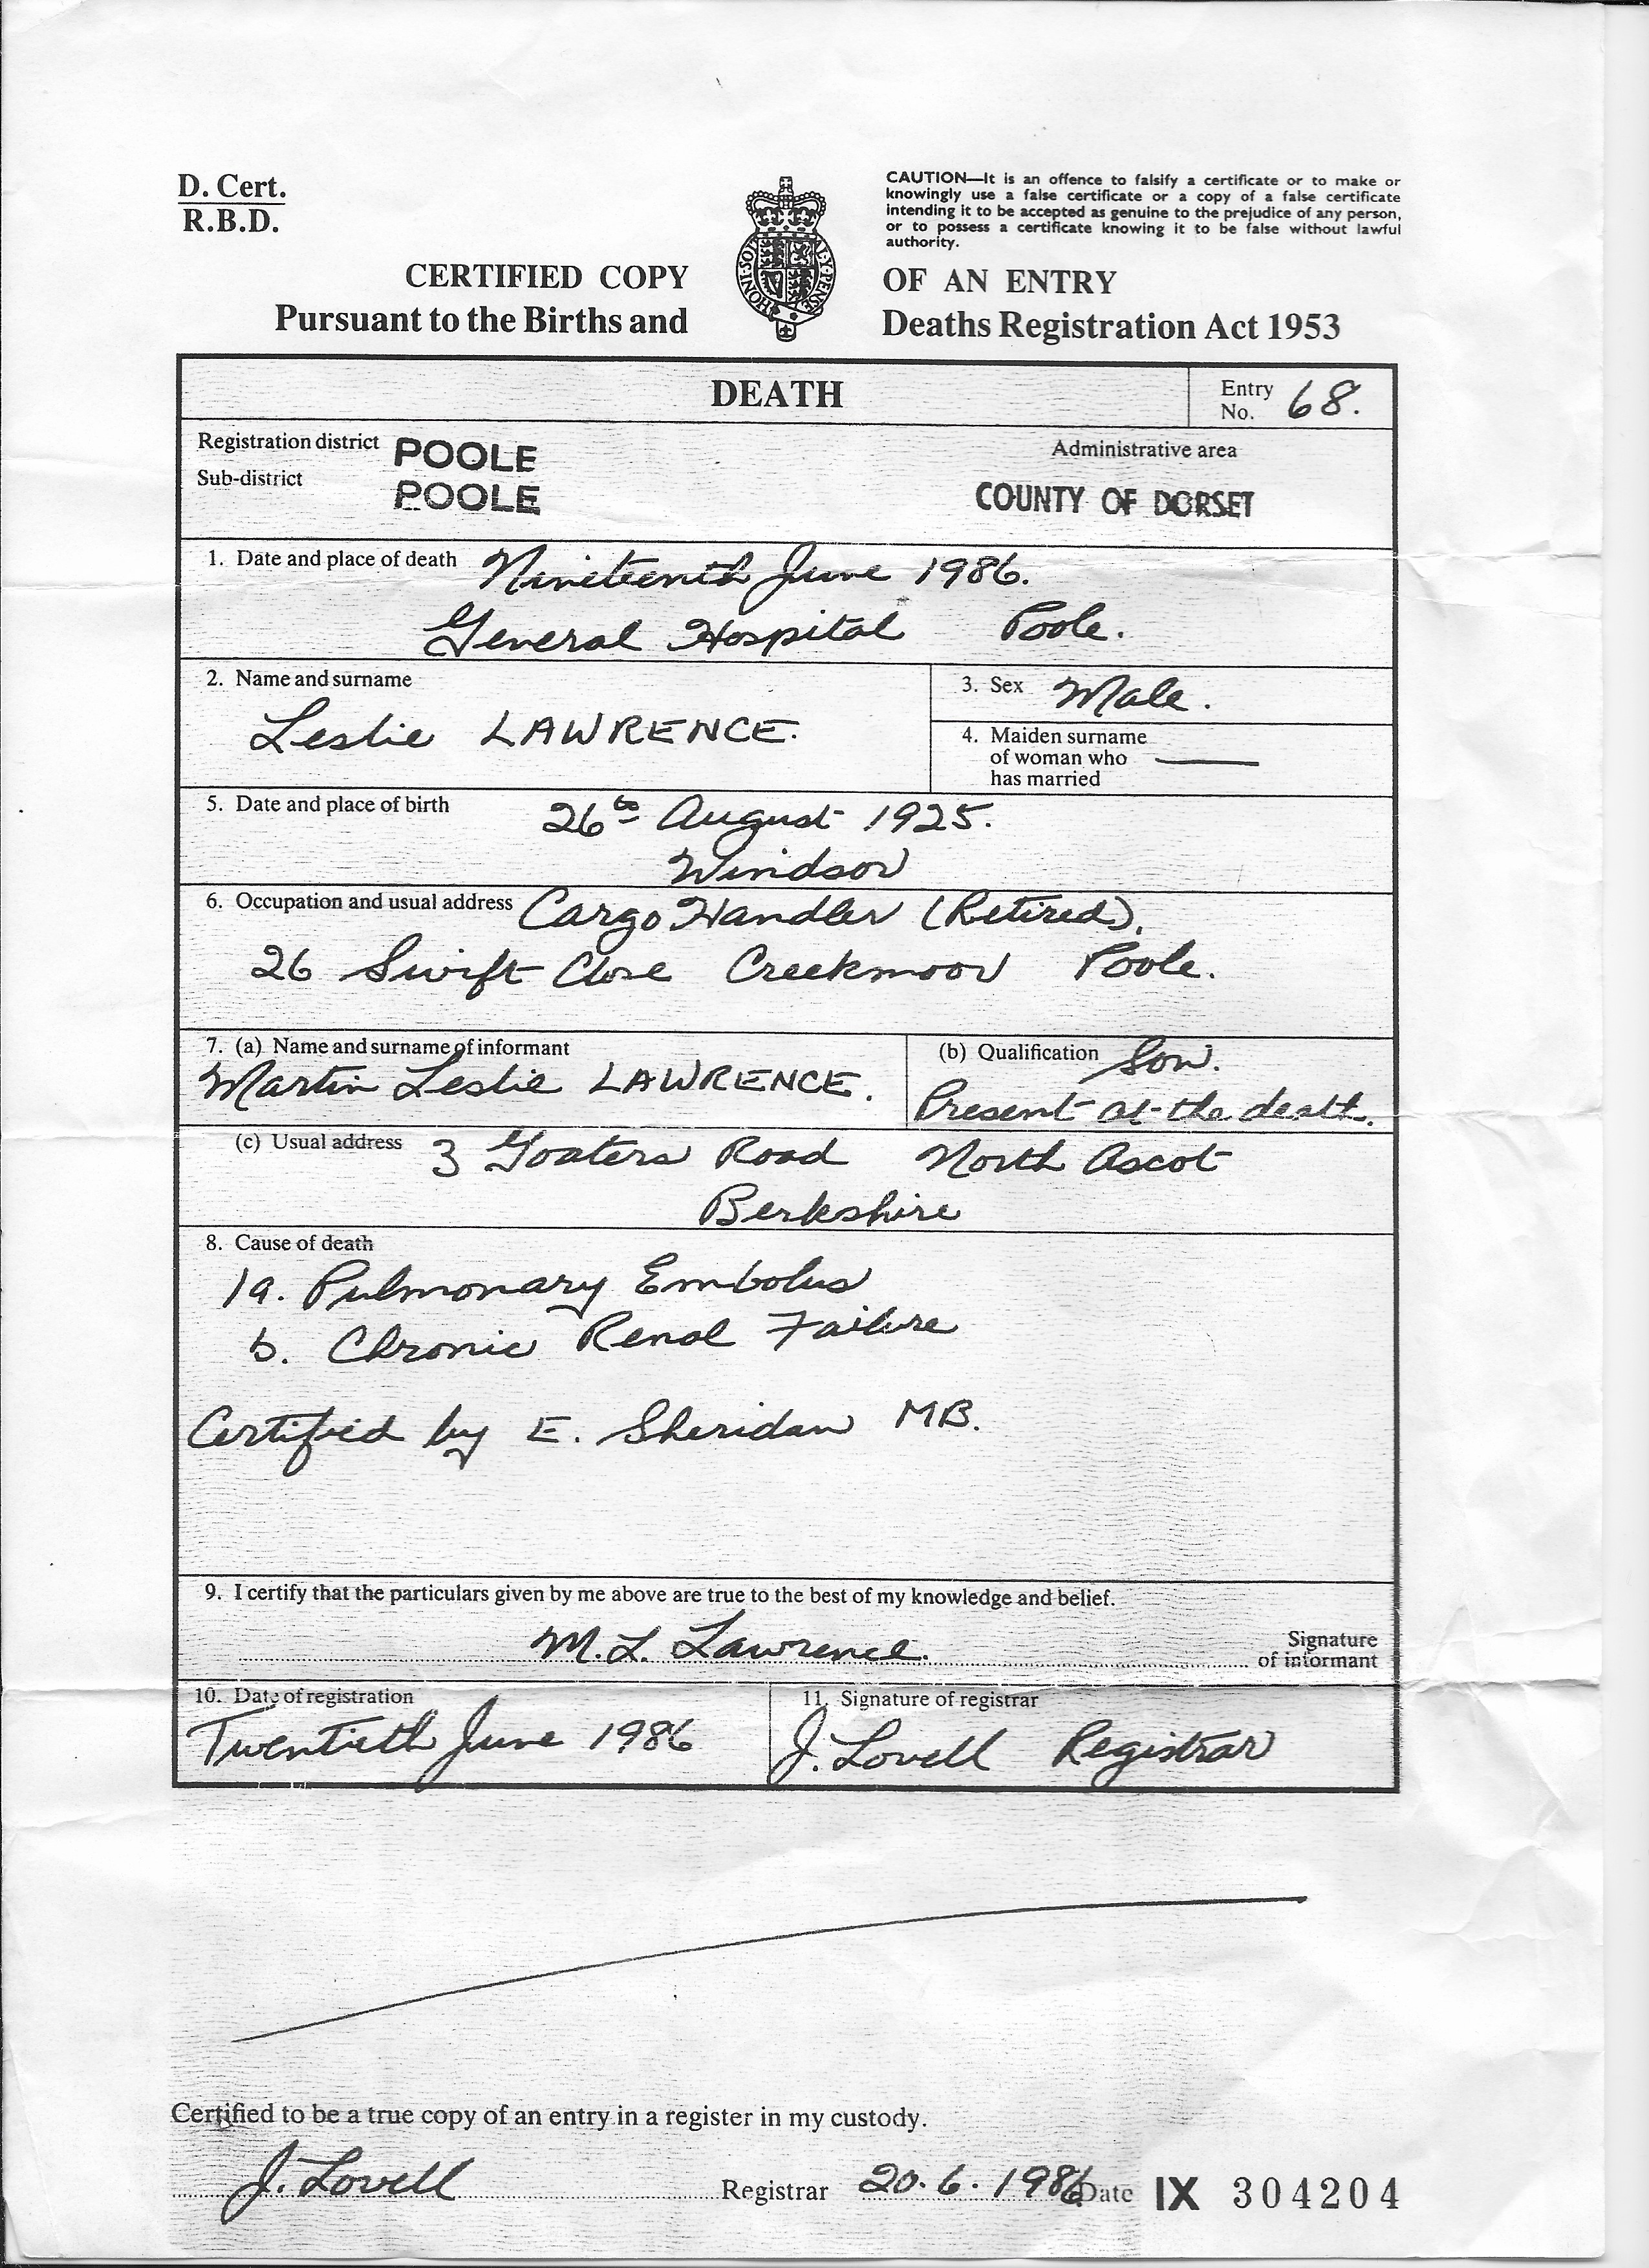 D. Cert.
R.B.D.
CAUTION—It is an offence to falsify a certificate or to make or
knowingly use a false certificate or a copy of a false certificate
intending it to be accepted as genuine to the prejudice of any person,
or to possess a certificate knowing it to be false without lawful
authority.
HONI·SOIT ·Y·PENSE
CERTIFIED COPY OF AN ENTRY
Pursuant to the Births and Deaths Registration Act 1953
DEATH
Entry No. 68.
Registration district POOLE
Sub-district POOLE
Administrative area
COUNTY OF DORSET
1. Date and place of death Nineteenth June 1986.
General Hospital Poole.
2. Name and surname
Leslie LAWRENCE.
3. Sex Male.
4. Maiden surname
of woman who
has married
5. Date and place of birth 26th August 1925.
Windsor
6. Occupation and usual address Cargo Handler (Retired),
26 Swift Close Creekmoor Poole.
7. (a) Name and surname of informant
Martin Leslie LAWRENCE.
(b) Qualification Son.
Present at the death.
(c) Usual address 3 Goaters Road North Ascot
Berkshire
8. Cause of death
1a. Pulmonary Embolus
b. Chronic Renal Failure
Certified by E. Sheridan MB.
9. I certify that the particulars given by me above are true to the best of my knowledge and belief.
M.L. Lawrence. Signature
of informant
10. Date of registration
Twentieth June 1986
11. Signature of registrar
J. Lovell Registrar
Certified to be a true copy of an entry in a register in my custody.
J. Lovell Registrar 20.6.1986 Date IX 304204